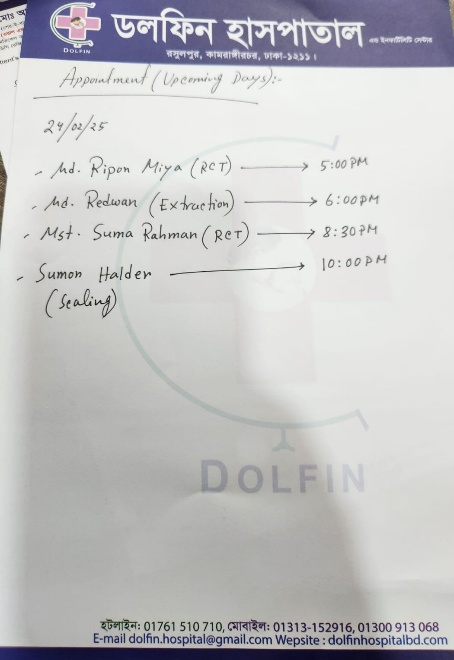 ডলফিন হাসপাতাল এন্ড ইনফার্টিলিটি সেন্টার
DOLFIN
রসুলপুর, কামরাঙ্গীরচর, ঢাকা-১২১১।
Appointment (Upcoming Days):-
24/02/25
- Md. Ripon Miya (RCT) → 5:00 PM
- Md. Redwan (Extraction) → 6:00 PM
- Mst. Suma Rahman (RCT) → 8:30 PM
- Sumon Halder → 10:00 PM
(Scaling)
DOLFIN
হটলাইন: 01761 510 710, মোবাইল: 01313-152916, 01300 913 068
E-mail dolfin.hospital@gmail.com Wepsite : dolfinhospitalbd.com